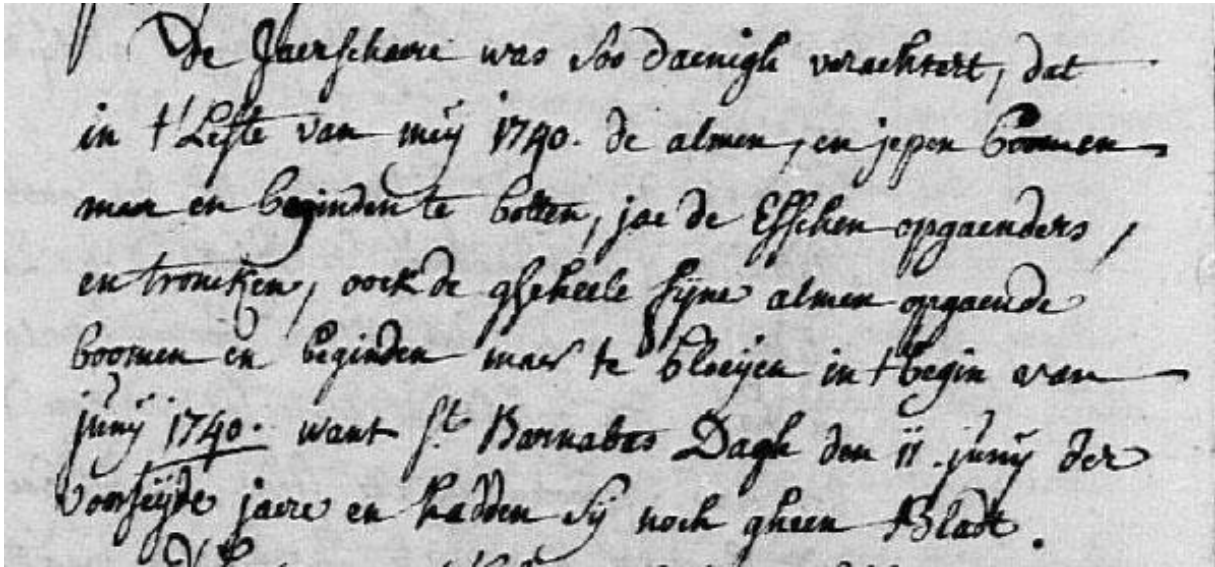 De Jaerschaere was soo daenigh verachtert, dat
in t'Leste van meij 1740. de almen, en jepen boomen
maer en beginden te botten, jae de Esschen opgaenders,
en troncken, oock de gheheele fijne almen opgaende
boomen en beginden maer te bloeijen in t begin van
junij 1740. want St. Barnabas Dagh den 11. junij der
voorseijde jaere en hadden sij noch gheen Bladt.